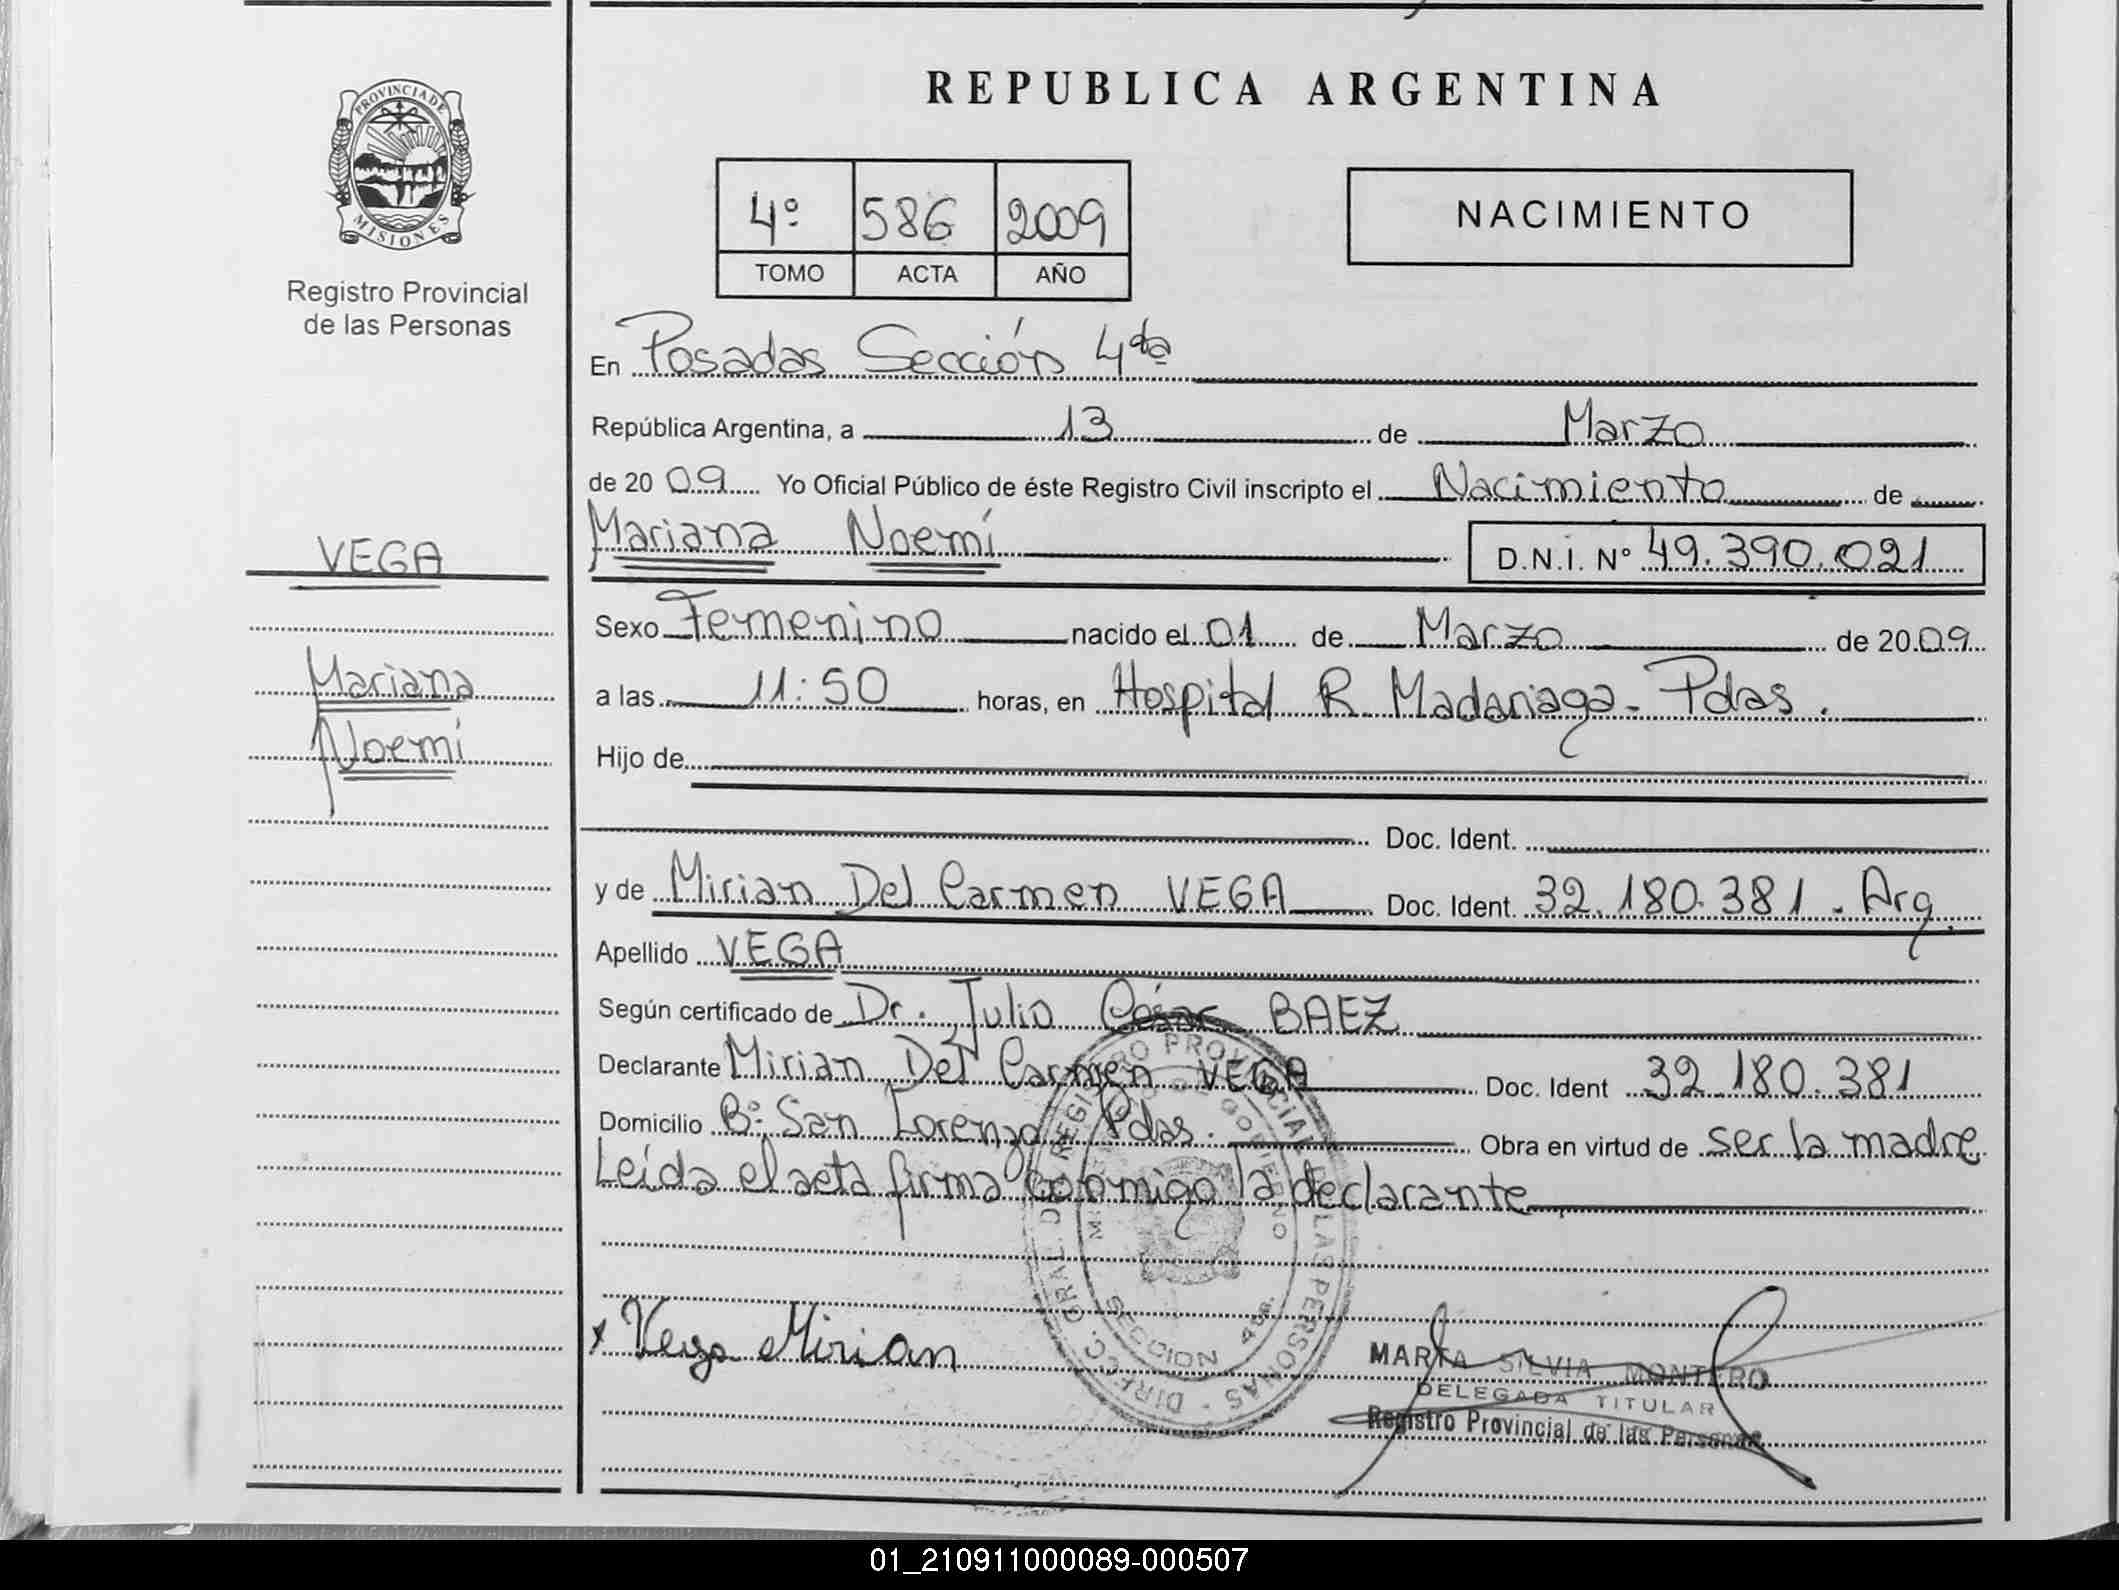 REPUBLICA ARGENTINA
PROVINCIA DE
MISIONES
Registro Provincial
de las Personas
4º 586 2009
TOMO ACTA AÑO
NACIMIENTO
En Posadas Sección 4ta
República Argentina, a 13 de Marzo
de 2009 Yo Oficial Público de éste Registro Civil inscripto el Nacimiento de
Mariana Noemí D.N.I. Nº 49.390.021
VEGA
Mariana
Noemí
Sexo Femenino nacido el 01 de Marzo de 2009
a las 11:50 horas, en Hospital R. Madariaga - Pdas.
Hijo de
Doc. Ident.
y de Mirian Del Carmen VEGA Doc. Ident. 32.180.381. Arg.
Apellido VEGA
Según certificado de Dr. Julio César BAEZ
Declarante Mirian Del Carmen VEGA Doc. Ident 32.180.381
Domicilio Bº: San Lorenzo Pdas. Obra en virtud de ser la madre
Leída el acta firma conmigo la declarante
DIRECC. GRAL. DE REGISTRO PROVINCIAL DE LAS PERSONAS
SECCION 4ta.
x Vega Mirian
MARTA SILVIA MONTERO
DELEGADA TITULAR
Registro Provincial de las Personas
01_210911000089-000507